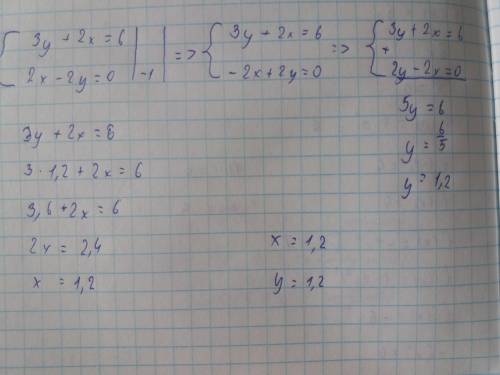 { 3y + 2x = 6 | | => { 3y + 2x = 6 => { 3y + 2x = 6
+
2x - 2y = 0 | -1 | - 2x + 2y = 0 2y - 2x = 0
5y = 6
y = 6/5
y = 1,2
3y + 2x = 6
3 · 1,2 + 2x = 6
3,6 + 2x = 6
2x = 2,4
x = 1,2
x = 1,2
y = 1,2